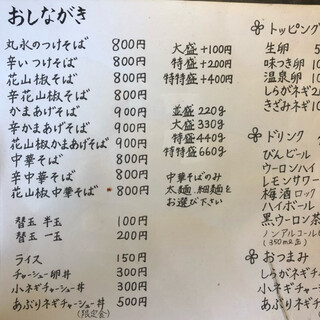 おしながき
丸氷のつけそば 800円
辛いつけそば 800円
花山椒そば 800円
辛花山椒そば 800円
かまあげそば 900円
辛かまあげそば 900円
花山椒かまあげそば 900円
中華そば 800円
辛中華そば 800円
花山椒中華そば 800円
替玉 半玉 100円
替玉 一玉 200円
ライス 150円
チャーシュー卵丼 300円
小ネギチャーシュー丼 300円
あぶりネギチャーシュー丼 500円
(限定食)
大盛 +100円
特盛 +200円
特特盛 +400円
並盛 220g
大盛 330g
特盛 440g
特特盛 660g
中華そばのみ
太麺、細麺を
お選び下さい
トッピング
生卵
味つき卵
温泉卵
しらがネギ
きざみネギ
ドリンク
びんビール
ウーロンハイ
レモンサワー
梅酒ロック
ハイボール
黒ウーロン茶
ノンアルコールビ
(350ml缶)
おつまみ
しらがネギチャ
小ネギチャーシ
あぶりネギチャ